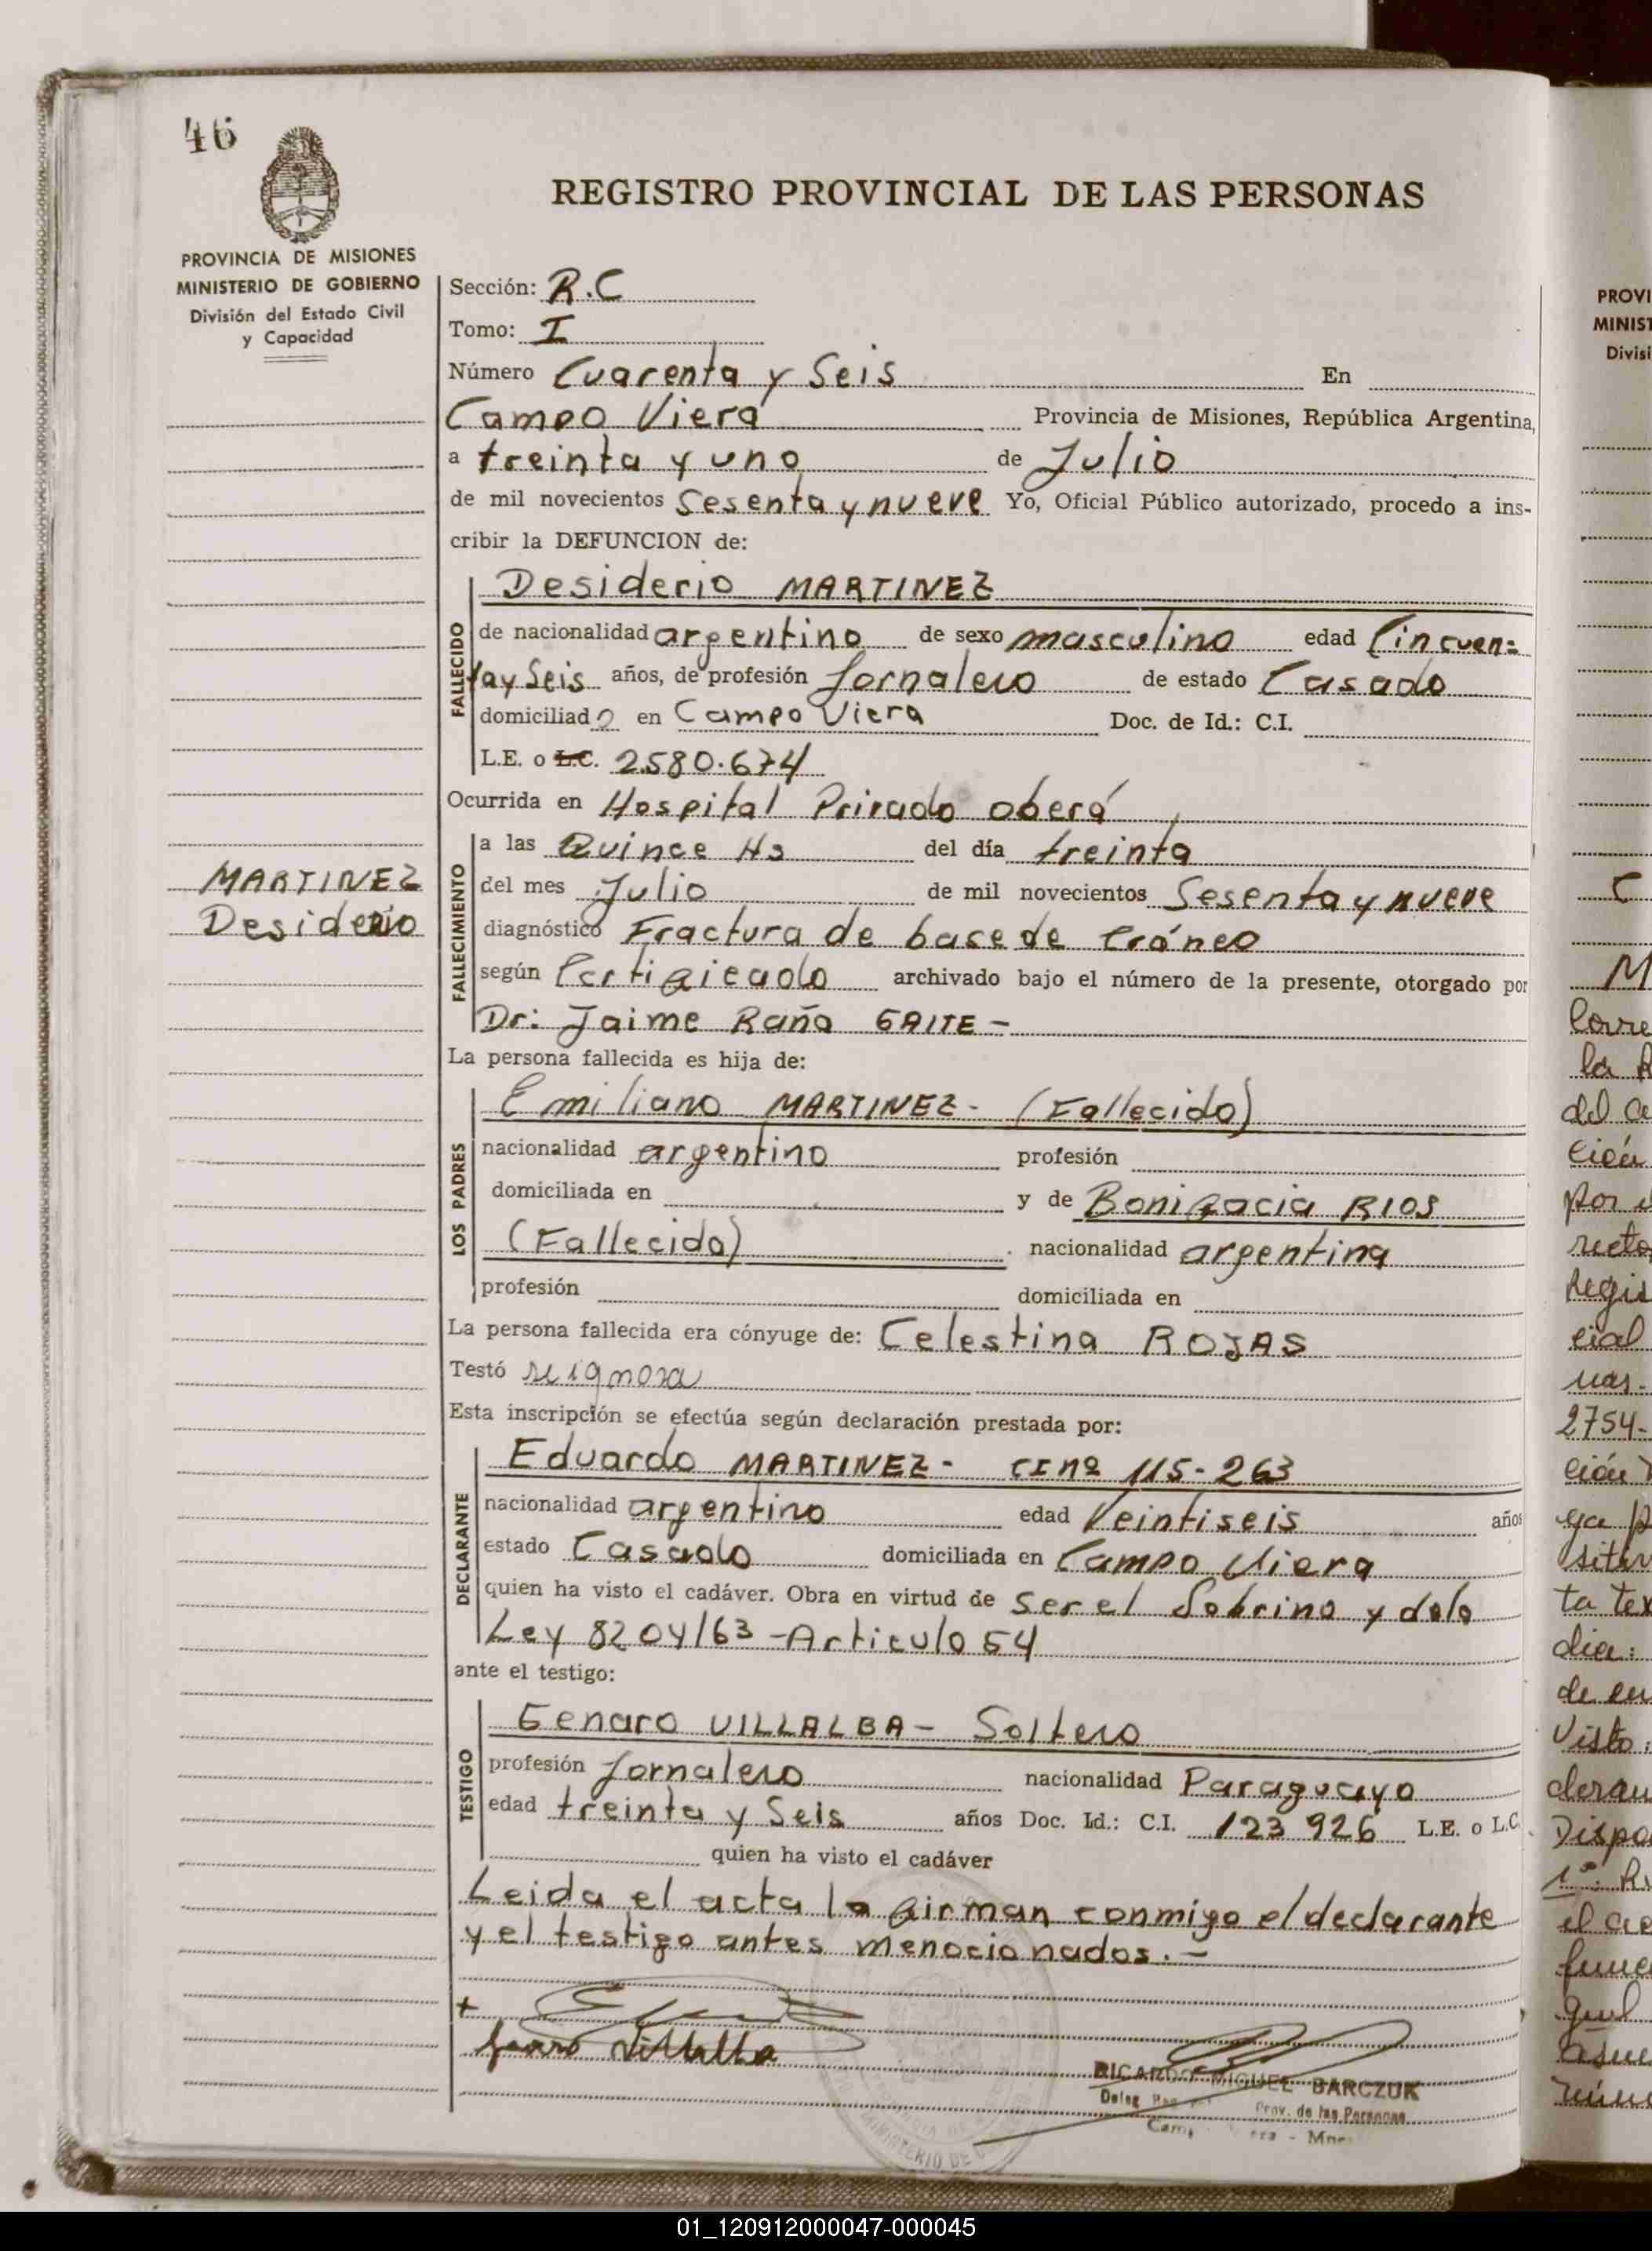 46
REGISTRO PROVINCIAL DE LAS PERSONAS
PROVINCIA DE MISIONES
MINISTERIO DE GOBIERNO
División del Estado Civil
y Capacidad
Sección: R.C
Tomo: I
Número Cuarenta y Seis En
Campo Viera Provincia de Misiones, República Argentina,
a treinta y uno de Julio
de mil novecientos Sesenta y nueve Yo, Oficial Público autorizado, procedo a ins-
cribir la DEFUNCION de:
FALLECIDO
Desiderio MARTINEZ
de nacionalidad argentino de sexo masculino edad Cincuen=
tay Seis años, de profesión Jornalero de estado Casado
domiciliado en Campo Viera Doc. de Id.: C.I.
L.E. o L.C. 2.580.674
Ocurrida en Hospital Privado oberá
FALLECIMIENTO
a las Quince Hs del día treinta
del mes Julio de mil novecientos Sesenta y nueve
MARTINEZ
Desiderio
diagnóstico Fractura de base de Cráneo
según Certificado archivado bajo el número de la presente, otorgado por
Dr: Jaime Raña GAITE -
La persona fallecida es hija de:
LOS PADRES
Emiliano MARTINEZ- (Fallecido)
nacionalidad argentino profesión
domiciliada en y de Bonifacia RIOS
(Fallecida) nacionalidad argentina
profesión domiciliada en
La persona fallecida era cónyuge de: Celestina ROJAS
Testó se ignora
Esta inscripción se efectúa según declaración prestada por:
DECLARANTE
Eduardo MARTINEZ- CI nº 115-263
nacionalidad argentino edad Veintiseis años
estado Casado domiciliada en Campo Viera
quien ha visto el cadáver. Obra en virtud de Ser el Sobrino y dolo
Ley 8204/63 -Articulo 54
ante el testigo:
TESTIGO
Genaro VILLALBA- Soltero
profesión Jornalero nacionalidad Paraguayo
edad treinta y Seis años Doc. Id.: C.I. 123 926 L.E. o L.C.
quien ha visto el cadáver
Leida el acta la firman conmigo el declarante
y el testigo antes menocionados.-
Genaro Villalba
RICARDO MIGUEL BARCZUK
Prov. de las Personas
MINISTERIO DE
PROVI
MINIST
Divisi
2754-
01_120912000047-000045